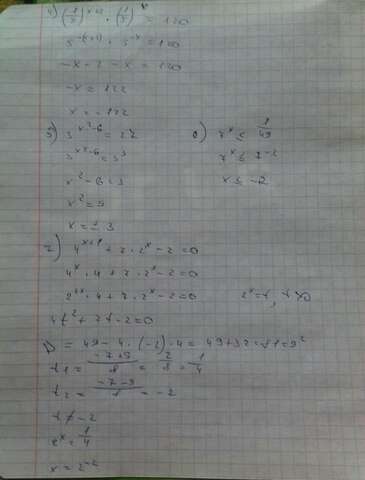 4) (1/5)^x+2 · (1/5)^x = 120
5^-(x+2) · 5^-x = 120
-x - 2 - x = 120
-x = 122
x = -122
5) 3^x²-6 = 27
3^x²-6 = 3³
x² - 6 = 3
x² = 9
x = ± 3
6) 7^x ≤ 1/49
7^x ≤ 7^-2
x ≤ -2
7) 4^x+1 + 7 · 2^x - 2 = 0
4^x · 4 + 7 · 2^x - 2 = 0
2^2x · 4 + 7 · 2^x - 2 = 0   2^x = t, t > 0
4t² + 7t - 2 = 0
D = 49 - 4 · (-2) · 4 = 49 + 32 = 81 = 9²
t1 = (-7+9)/8 = 2/8 = 1/4
t2 = (-7-9)/8 = -2
t ≠ -2
2^x = 1/4
x = 2^-2